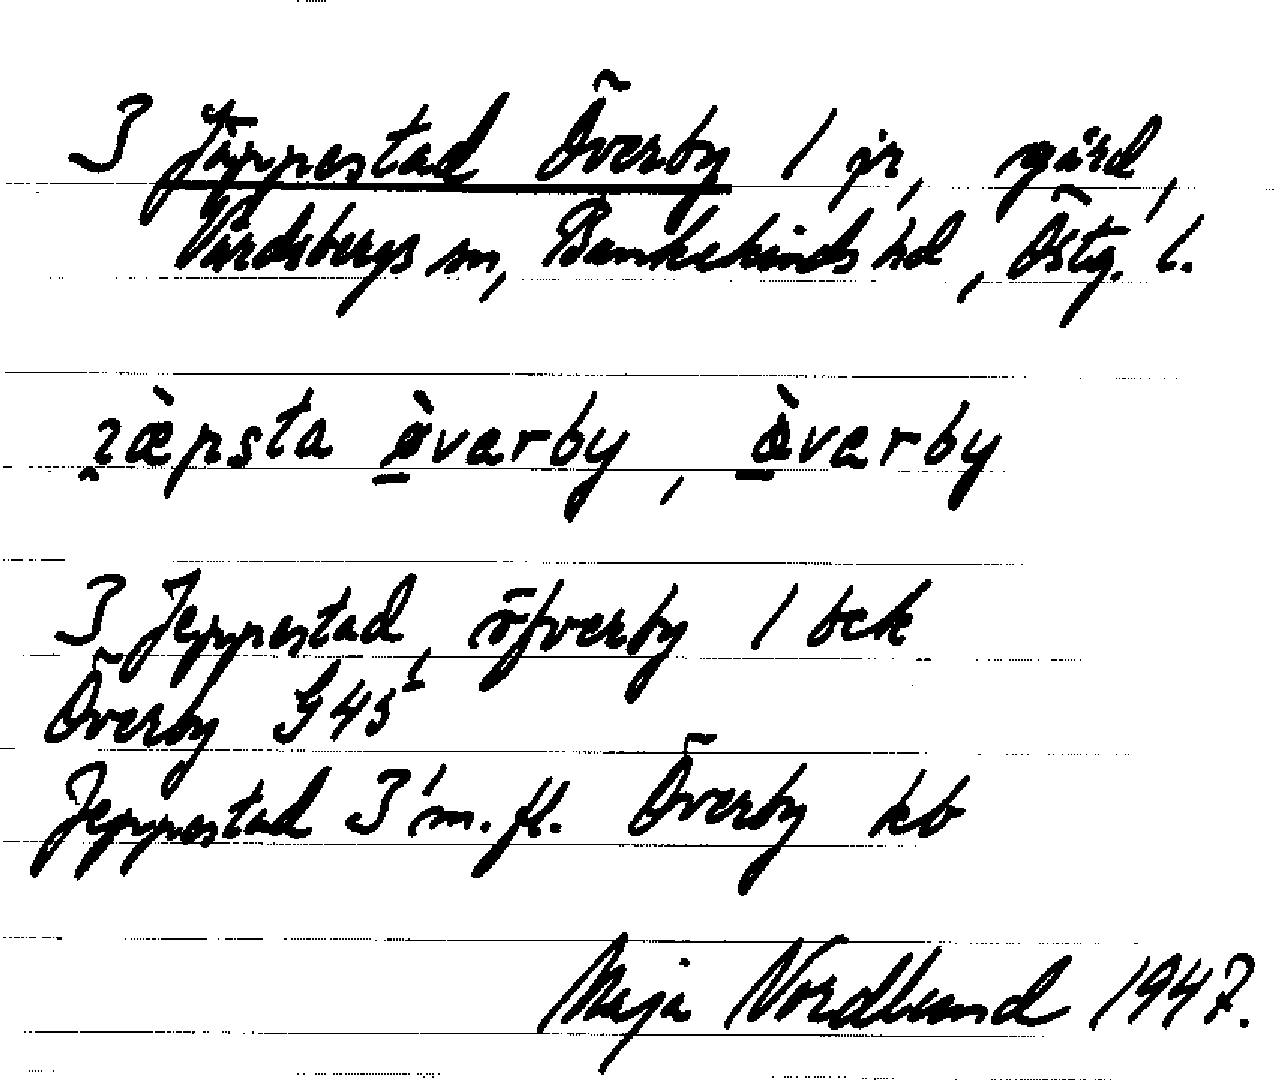 3 Jäppestad Överby 1 jr, gård,
Vårdsbergs sn, Bankekinds hd, Östg. l.
överby, överby
3 Jeppestad, öfverby 1 bek
Överby G45
Jeppestad 3 m. fl. Överby kb
Maja Nordlund 1947.